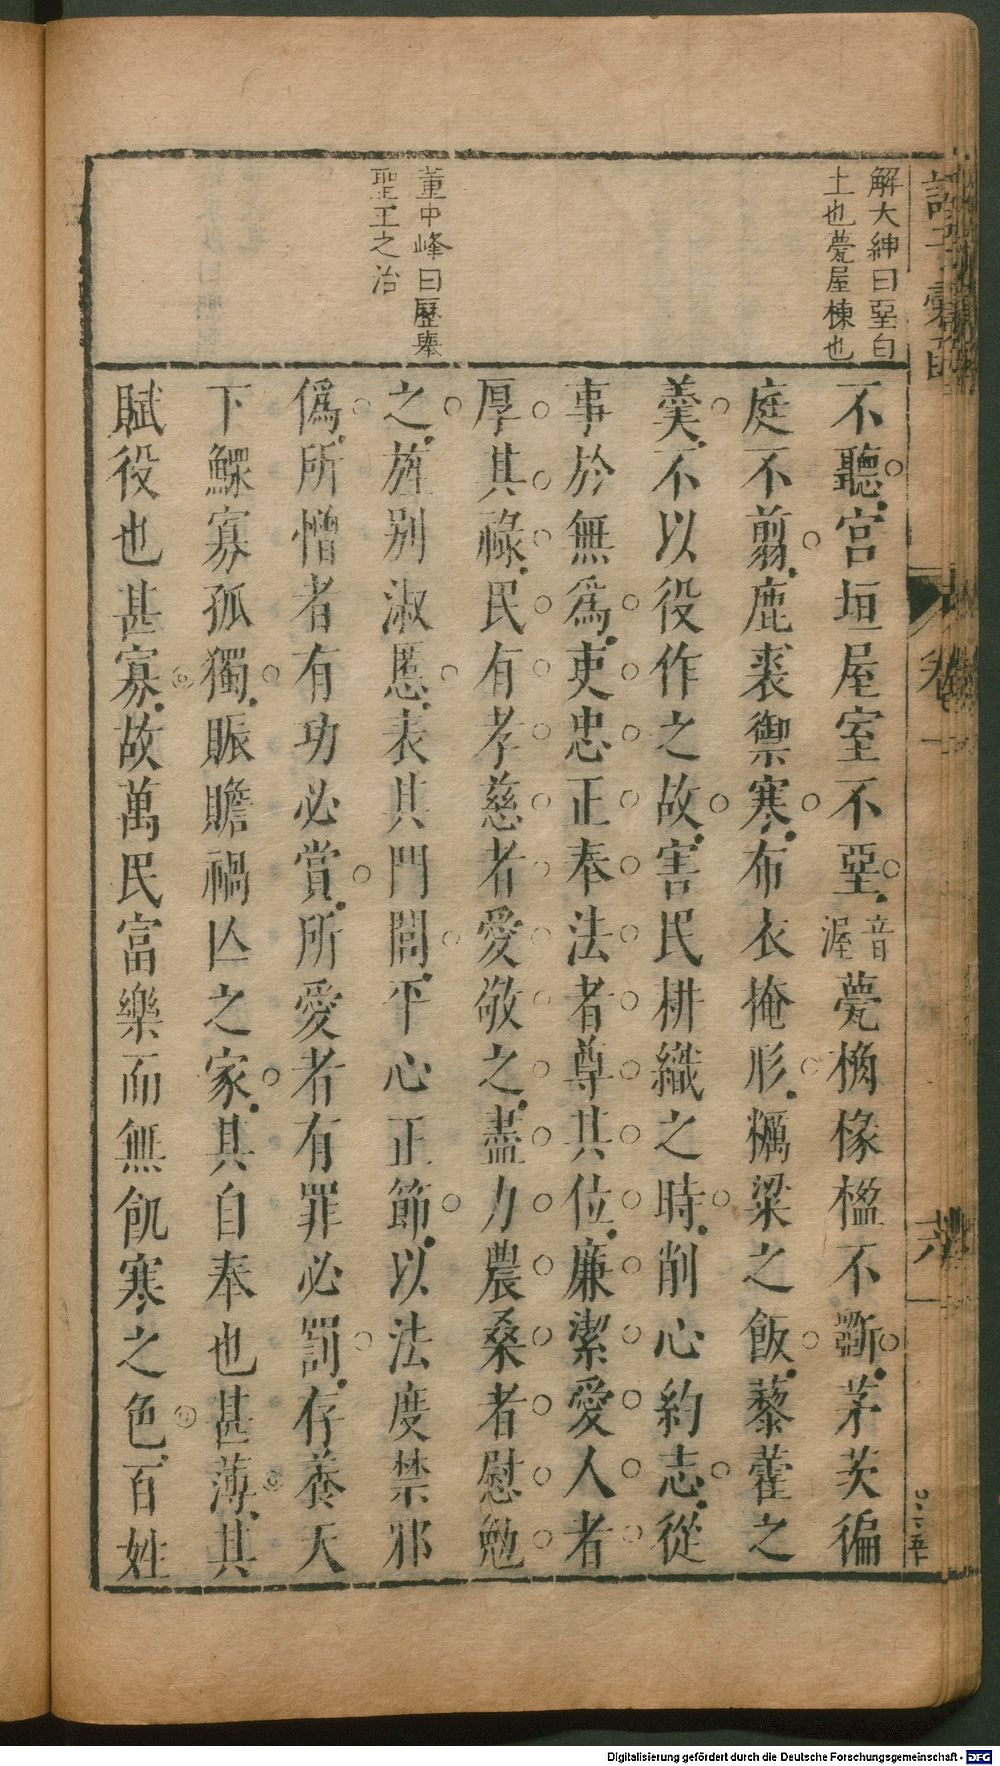 解大紳曰堊白
土也甍屋棟也
董中峰曰歷舉
聖王之治
不聽宮垣屋室不堊音渥甍桷椽楹不斵茅茨徧
庭不翦鹿裘禦寒布衣掩形糲粱之飯藜藿之
羹不以役作之故害民耕織之時削心約志從
事於無爲吏忠正奉法者尊其位廉潔愛人者
厚其祿民有孝慈者愛敬之盡力農桑者慰勉
之旌別淑慝表其門閭平心正節以法度禁邪
僞所憎者有功必賞所愛者有罪必罰存養天
下鰥寡孤獨賑贍禍亾之家其自奉也甚薄其
賦役也甚寡故萬民富樂而無飢寒之色百姓
卷一
六
Digitalisierung gefördert durch die Deutsche Forschungsgemeinschaft - DFG